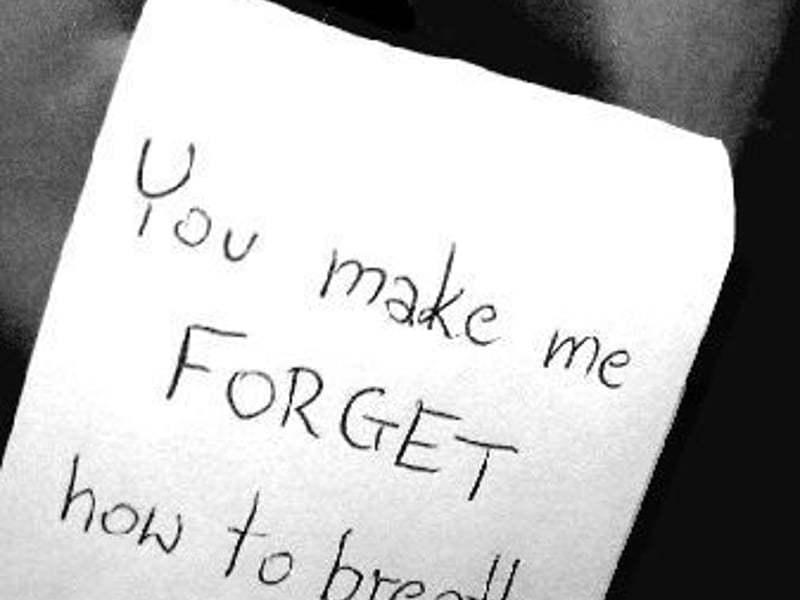 You make me
FORGET
how to breath